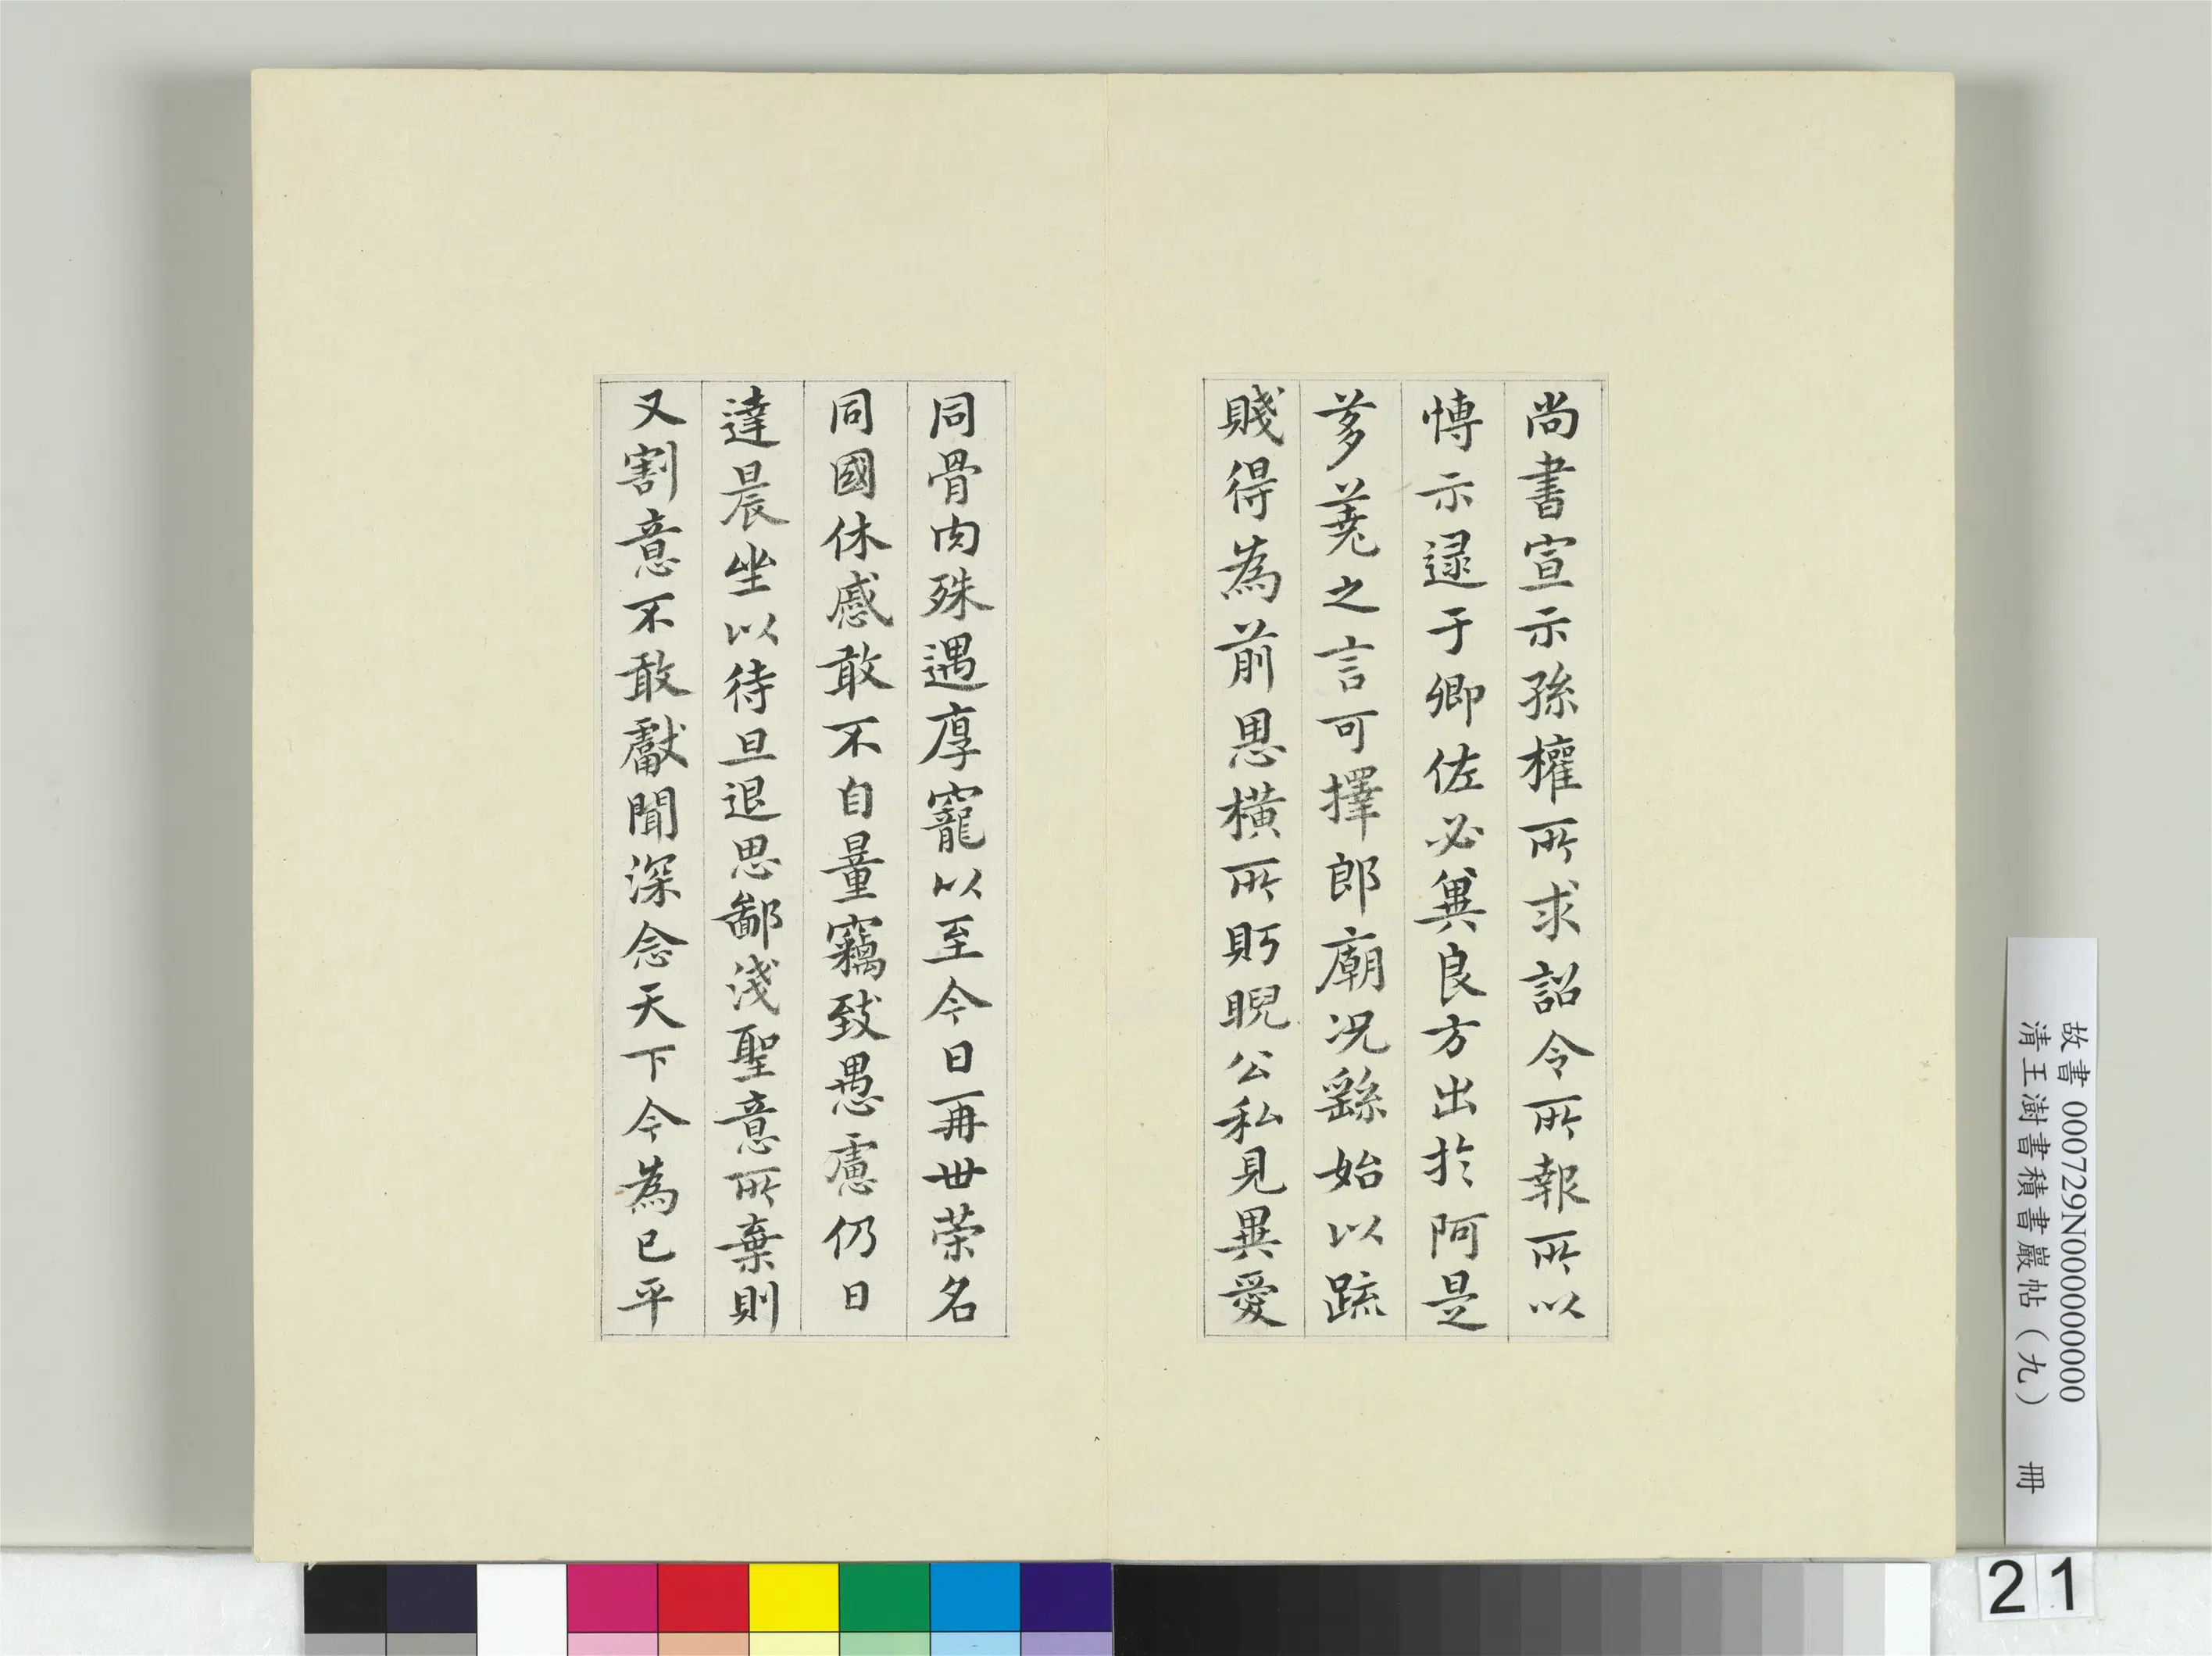 尚書宣示孫權所求詔令所報所以
博示逯于卿佐必兾良方出於阿是
芻蕘之言可擇郎廟况繇始以疏
賤得為前恩横所眄睨公私見異愛
同骨肉殊遇厚寵以至今日再世荣名
同國休慼敢不自量竊致愚慮仍日
達晨坐以待旦退思鄙淺聖意所棄則
又割意不敢獻聞深念天下今為已平
故書 000729N000000000
清王澍書積書巖帖（九） 冊
21